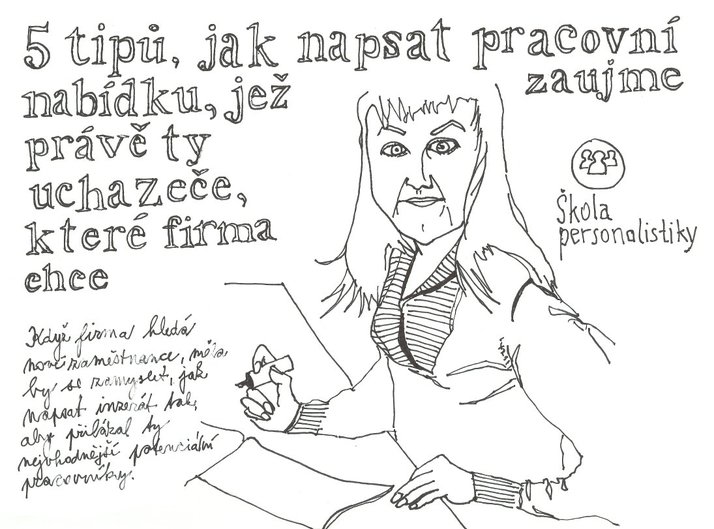 5 tipů, jak napsat pracovní
nabídku, jež zaujme
právě ty
uchazeče,
které firma
chce
Škola
personalistiky
Když firma hledá
nové zaměstnance, měla
by se zamyslet, jak
napsat inzerát tak,
aby přilákal ty
nejvhodnější potenciální
pracovníky.